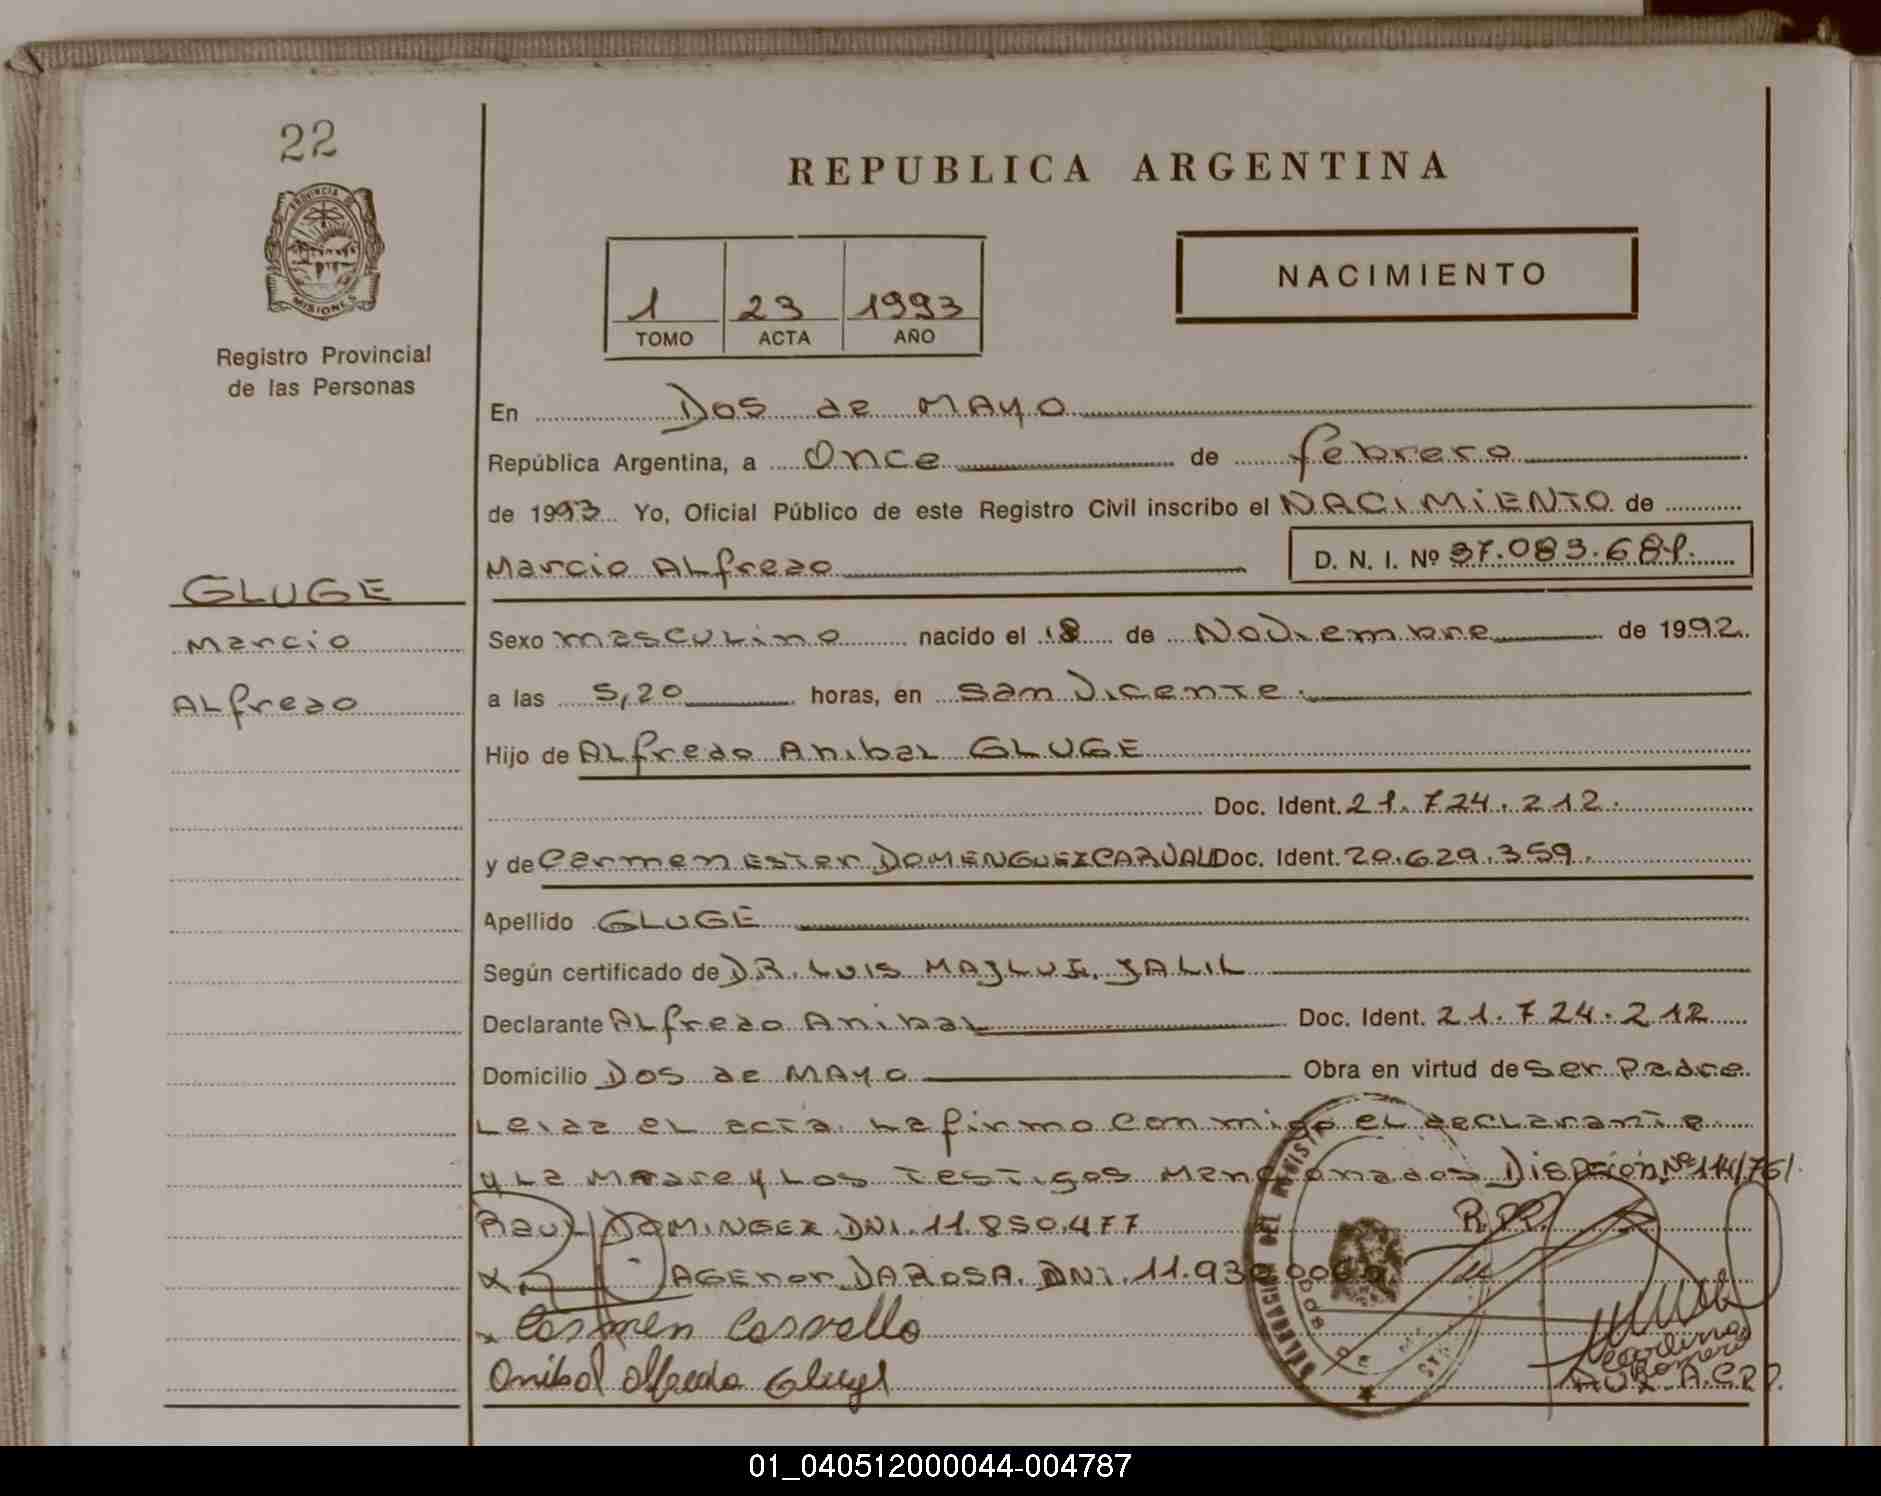 22
REPUBLICA ARGENTINA
PROVINCIA DE
MISIONES
Registro Provincial
de las Personas
1 23 1993
TOMO ACTA AÑO
NACIMIENTO
En Dos de MAYO
República Argentina, a Once de febrero
de 1993 Yo, Oficial Público de este Registro Civil inscribo el NACIMIENTO de
Marcio ALfredo D. N. I. Nº 37.083.681.
GLUGE
Marcio
ALfredo
Sexo masculino nacido el 18 de Noviembre de 1992.
a las 5,20 horas, en San Vicente.
Hijo de ALfredo Anibal GLUGE
Doc. Ident. 21.724.212.
y de Carmen ESTER DOMENGUEZ CARVALLO Doc. Ident. 20.629.359.
Apellido GLUGE
Según certificado de DR. LUIS JALIL
Declarante ALfredo Anibal Doc. Ident. 21.724.212
Domicilio DOS de MAYO Obra en virtud de ser Padre
Leida el acta La firmo con migo el declarante
y La Madre y Los Testigos Mencionados Nº 114/76/
RauL DOMINGEZ DNI. 11.850.477 R.P.
x AGENOR DAROSA. DNI.
x Carmen Carvallo
Anibal Alfredo Gluge
DELEGACION DEL REGISTRO
DOS DE
Romero
AUX. A.C.R.P.
01_040512000044-004787